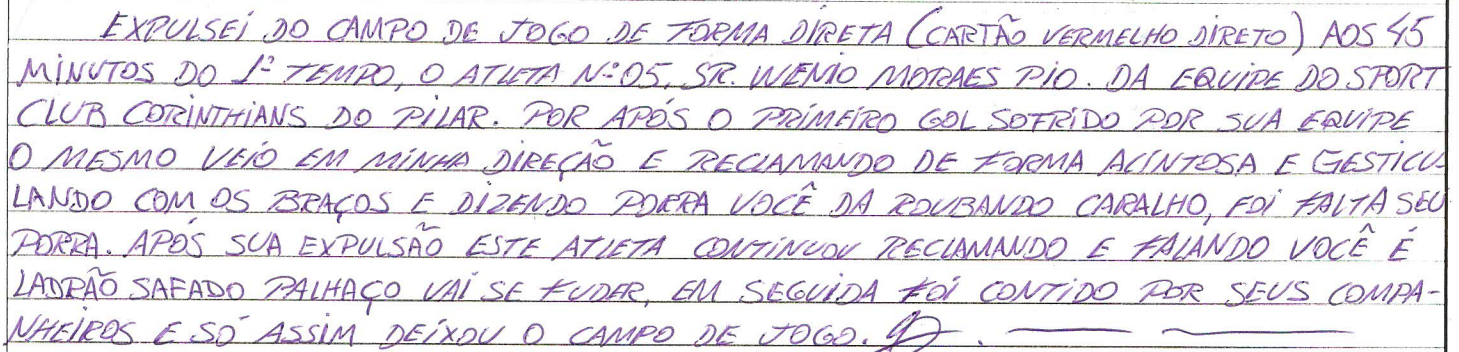 EXPULSEI DO CAMPO DE JOGO DE FORMA DIRETA (CARTÃO VERMELHO DIRETO) AOS 45
MINUTOS DO 1º TEMPO, O ATLETA Nº 05, SR. WENIO MORAES PIO. DA EQUIPE DO SPORT
CLUB CORINTHIANS DO PILAR. POR APÓS O PRIMEIRO GOL SOFRIDO POR SUA EQUIPE
O MESMO VEIO EM MINHA DIREÇÃO E RECLAMANDO DE FORMA ACINTOSA E GESTICU-
LANDO COM OS BRAÇOS E DIZENDO PORRA VOCÊ DA ROUBANDO CARALHO, FOI FALTA SEU
PORRA. APÓS SUA EXPULSÃO ESTE ATLETA CONTINUOU RECLAMANDO E FALANDO VOCÊ É
LADRÃO SAFADO PALHAÇO VAI SE FUDER, EM SEGUIDA FOI CONTIDO POR SEUS COMPA-
NHEIROS E SÓ ASSIM DEIXOU O CAMPO DE JOGO.